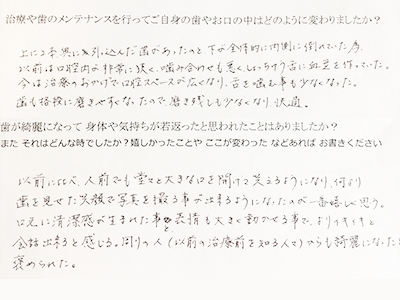 治療や歯のメンテナンスを行ってご自身の歯やお口の中はどのように変わりましたか？
上に2本奥に引っ込んだ歯があったのと下が全体的に内側に倒れていた為、
以前は口腔内が非常に狭く、噛み合わせも悪く、しょっちゅう舌に血豆を作っていた。
今は治療のおかげで口腔スペースが広くなり、舌を噛む事も少なくなった。
歯も格段に磨きやすくなったので磨き残しも少なくなり、快適。
歯が綺麗になって 身体や気持ちが若返ったと思われたことはありましたか？
また それはどんな時でしたか？嬉しかったことや ここが変わった などあれば お書きください
以前に比べ、人前でも堂々と大きな口を開けて笑えるようになり、何より
歯を見せた笑顔で写真を撮る事が出来るようになったのが一番嬉しく思う。
口元に清潔感が生まれた事と表情も大きく動かせる事で、よりイキイキと
会話出来ると感じる。周りの人（以前の治療前を知る人々）からも綺麗になったと
褒められた。